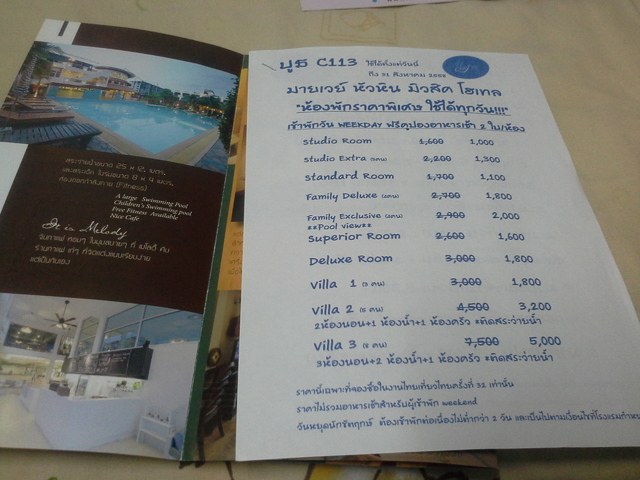 สระว่ายน้ำขนาด 25 x 12 เมตร
A large Swimming Pool
Children's Swimming pool
Free Fitness Available
Nice Cafe
It is Melody
บูธ C113 ใช้ได้ตั้งแต่วันนี้
ถึง 31 สิงหาคม
มายเวย์ หัวหิน มิวสิค โฮเทล
"ห้องพักราคาพิเศษ ใช้ได้ทุกวัน!!!"
เข้าพักวัน WEEKDAY ฟรีคูปองอาหารเช้า 2 ใบ/ห้อง
Studio Room 1,600 1,000
Studio Extra (3คน) 2,200 1,300
Standard Room 1,700 1,100
Family Deluxe (4คน) 2,700 1,800
Family Exclusive (4คน) 2,900 2,000
**Pool view**
Superior Room 2,600 1,600
Deluxe Room 3,000 1,800
Villa 1 (3 คน) 3,000 1,800
Villa 2 (5 คน) 4,500 3,200
2ห้องนอน+1 ห้องน้ำ+1 ห้องครัว *ติดสระว่ายน้ำ
Villa 3 (8 คน) 7,500 5,000
3ห้องนอน+2 ห้องน้ำ+1 ห้องครัว *ติดสระว่ายน้ำ
ราคานี้เฉพาะที่จองซื้อในงานไทยเที่ยวไทยครั้งที่ 32 เท่านั้น
ราคาไม่รวมอาหารเช้าสำหรับผู้เข้าพัก weekend
วันหยุดนักขัตฤกษ์ ต้องเข้าพักต่อเนื่องไม่ต่ำกว่า 2 วัน และเป็นไปตามเงื่อนไขที่โรงแรมกำหนด